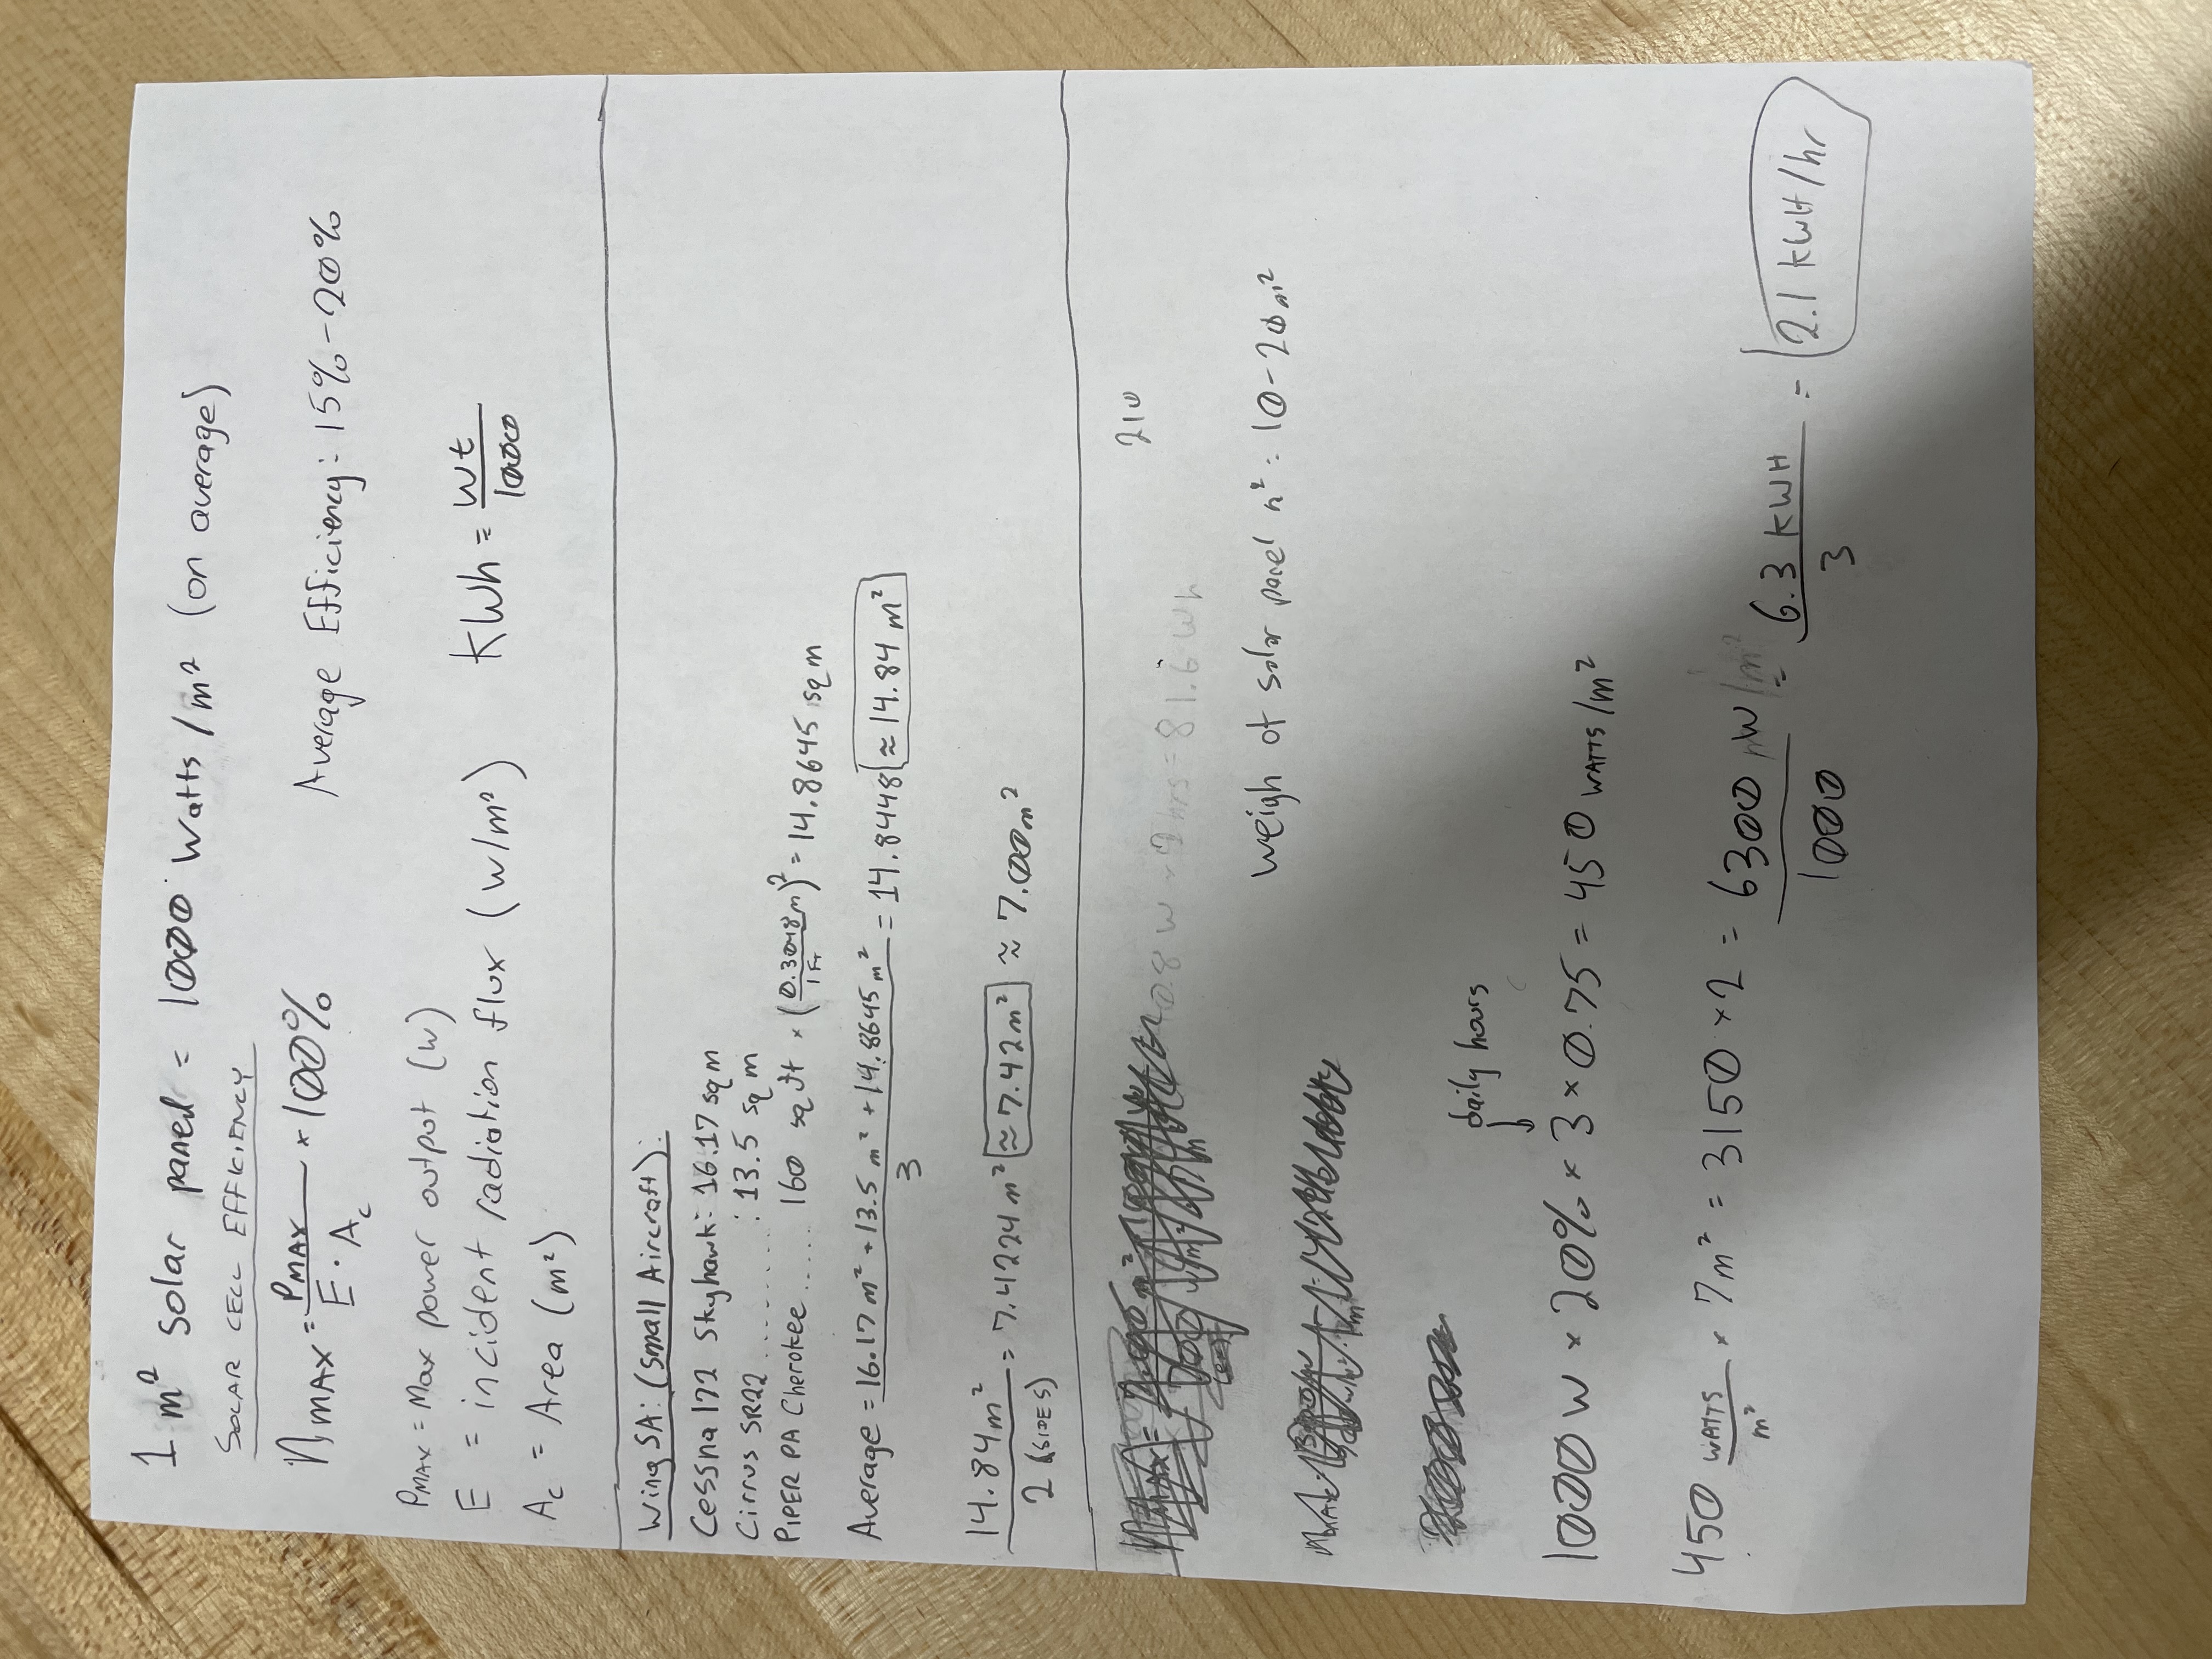 1 m² Solar panel = 1000 Watts/m² (on average)
SOLAR CELL EFFICIENCY
ηmax = PMAX / E · Ac × 100%
Average Efficiency: 15% - 20%
PMAX = Max power output (W)
E = incident radiation flux (W/m²)
Ac = Area (m²)
KWh = Wt / 1000
Wing SA: (Small Aircraft):
Cessna 172 Skyhawk: 16.17 sq m
Cirrus SR22 ........: 13.5 sq m
PIPER PA Cherokee ..... 160 sq ft × (0.3048 m / 1 Ft)² = 14.8645 sq m
Average = 16.17 m² + 13.5 m² + 14.8645 m² / 3 = 14.8448 ≈ 14.84 m²
14.84 m² / 2 (SIDES) = 7.4224 m² ≈ 7.42 m² ≈ 7.00 m²
210
hrs = 81.6 Wh
Weigh of solar panel m²: 10-20 m²
daily hours
1000 W × 20% × 3 × 0.75 = 450 WATTS/m²
450 WATTS / m² × 7 m² = 3150 × 2 = 6300 W/m² / 1000 = 6.3 KWH / 3 = 2.1 KWH/hr